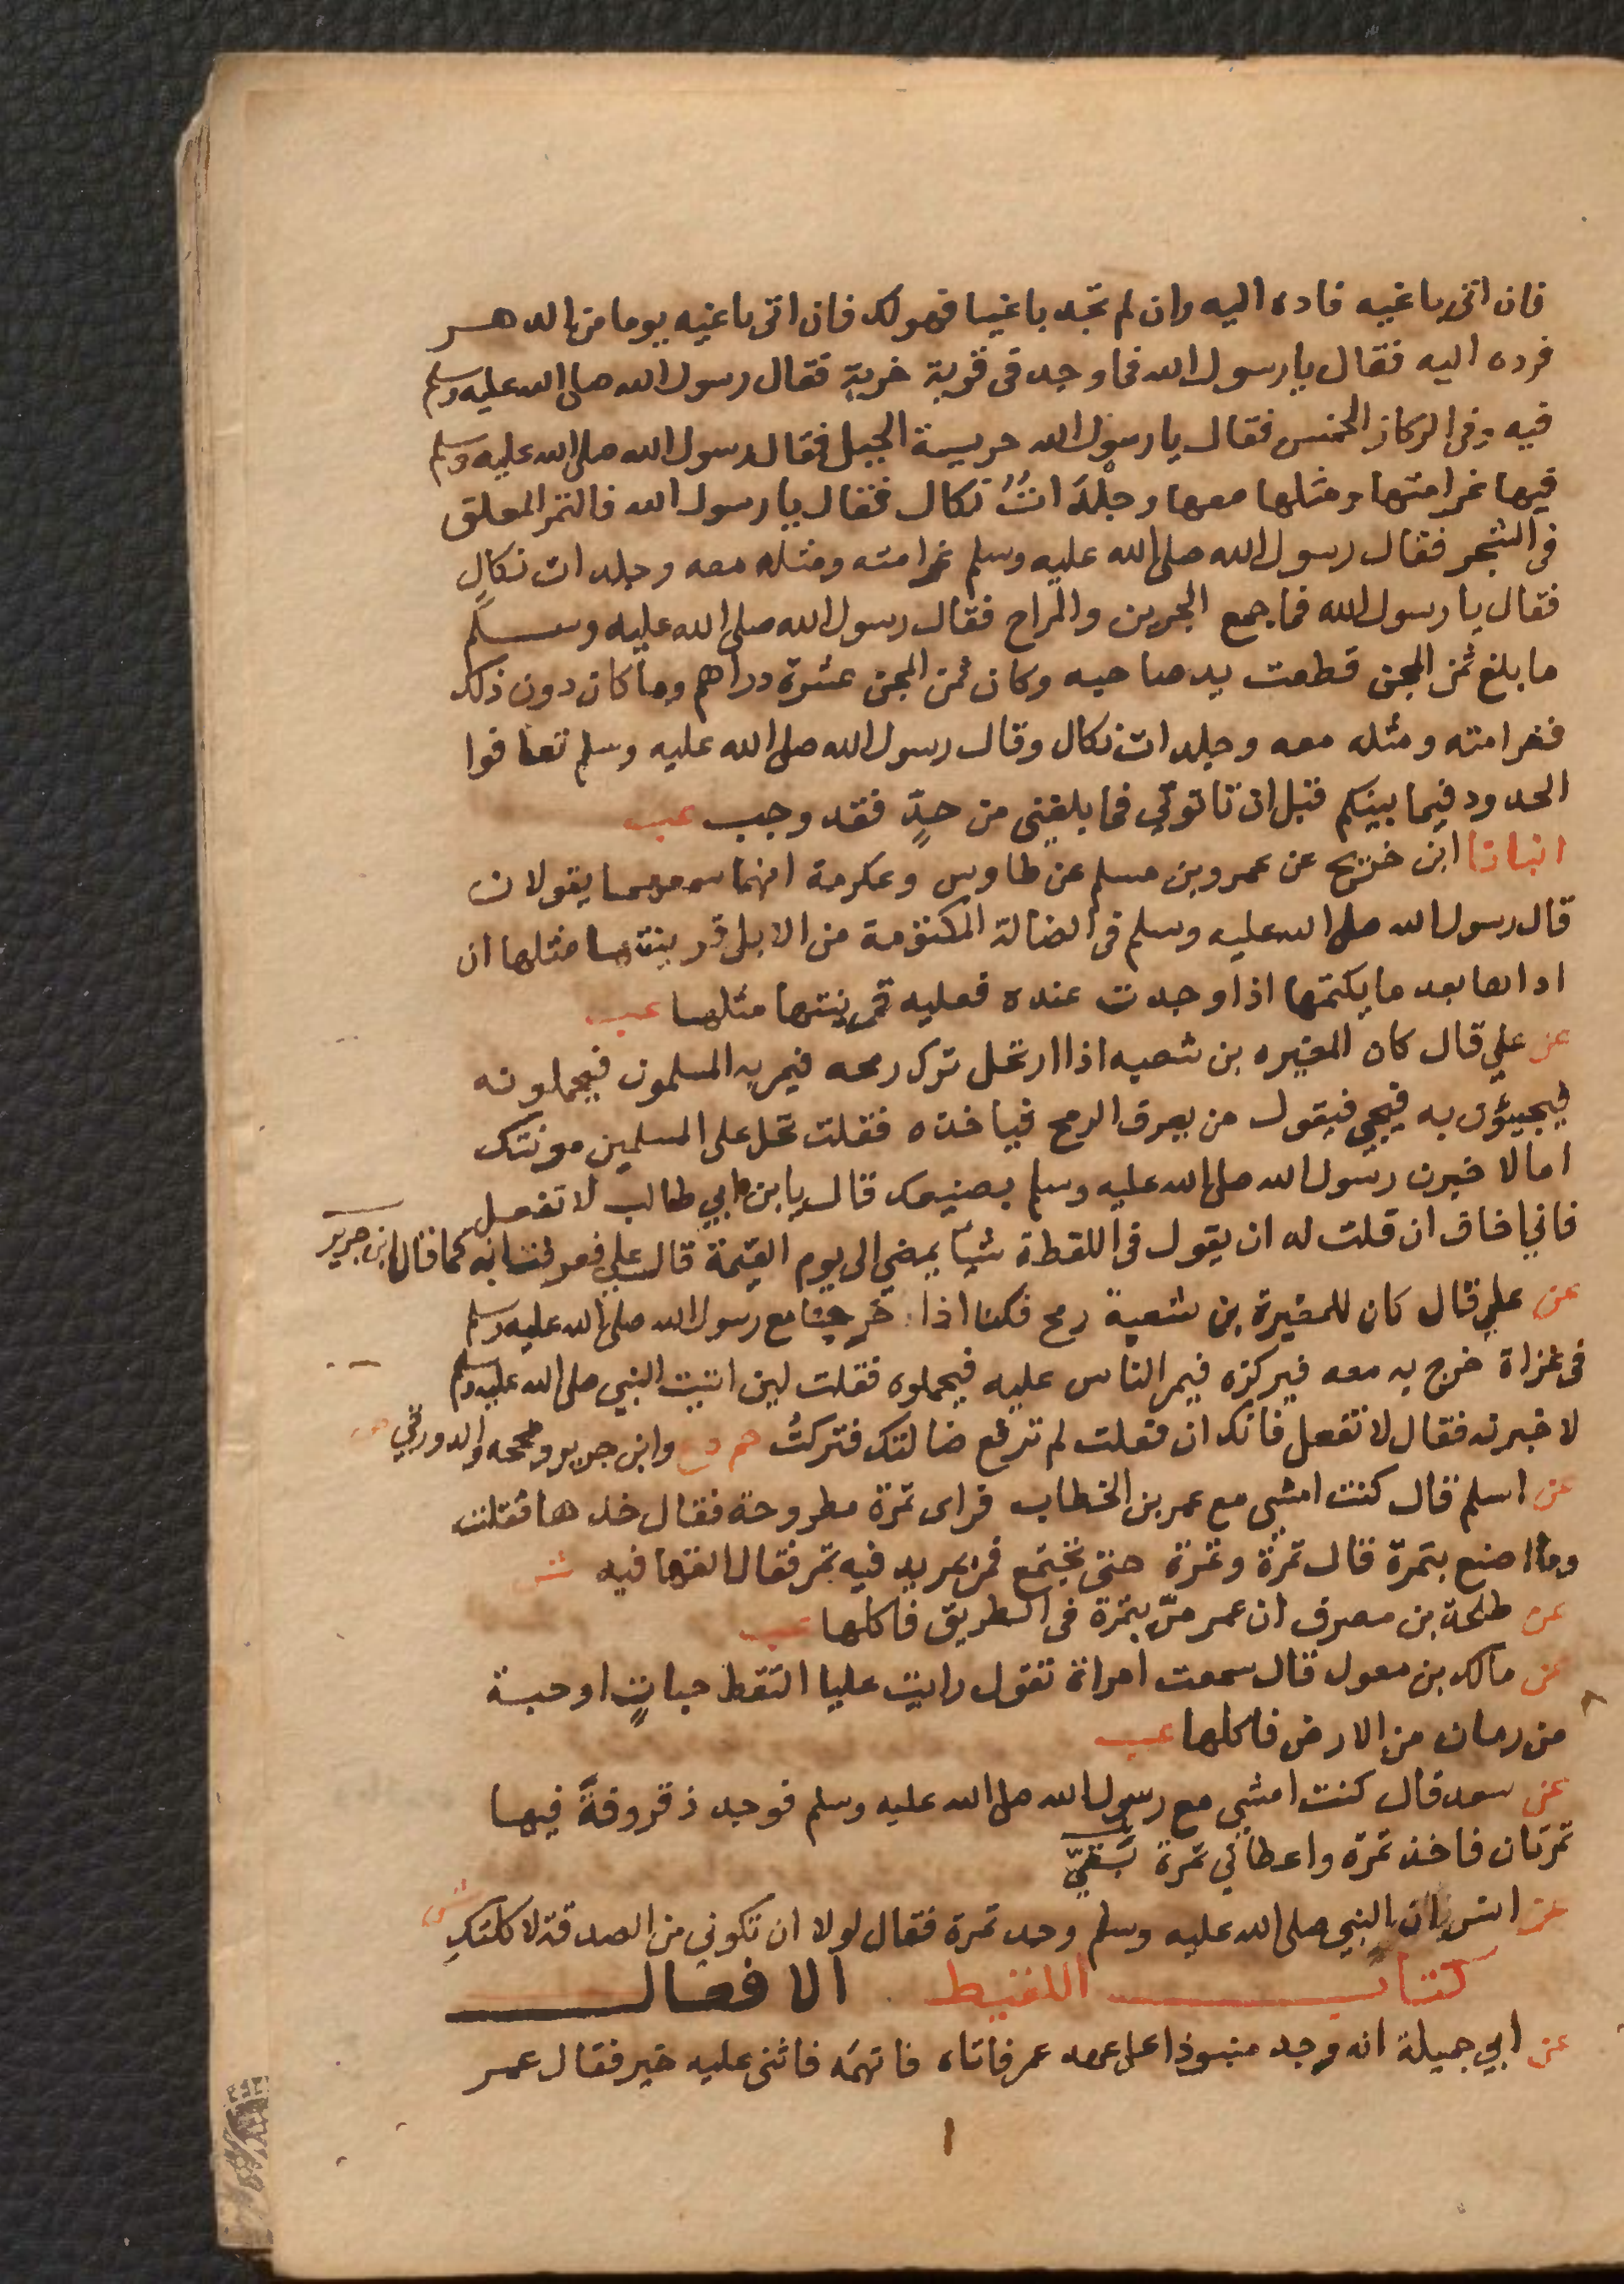 فان اتى باغيه فاده اليه وان لم تجد باغيا فهو لك فان اتى باغيه يوما من الدهر
فرده اليه فقال يا رسول الله فما وجد فى قرية خربة فقال رسول الله صلى الله عليه وسلم
فيه وفى الركاز الخمس فقال يا رسول الله حريسة الجبل فقال رسول الله صلى الله عليه وسلم
فيها غرامتها ومثلها معها وجلدات نكال فقال يا رسول الله فالتمر المعلق
فى الشجر فقال رسول الله صلى الله عليه وسلم غرامته ومثله معه وجلدات نكال
فقال يا رسول الله فما جمع الجرين والمراح فقال رسول الله صلى الله عليه وسلم
ما بلغ ثمن المجن قطعت يد صاحبه وكان ثمن المجن عشرة دراهم وما كان دون ذلك
فغرامته ومثله معه وجلدات نكال وقال رسول الله صلى الله عليه وسلم تعافوا
الحدود فيما بينكم قبل ان تاتونى فما بلغنى من حدٍّ فقد وجب عب
انبانا ابن خريج عن عمرو بن مسلم عن طاوس وعكرمة انهما سمعهما يقولان
قال رسول الله صلى الله عليه وسلم فى الضالة المكتومة من الابل قرينتها مثلها ان
اداها بعد ما يكتمها اذا وجدت عنده فعليه قرينتها مثلها عب
عن علي قال كان المغيره بن شعبه اذا ارتحل ترك رمحه فيمر به المسلمون فيحملونه
فيجيئون به فيجي فيقول من يعرف الرمح فياخذه فقلت تحمل على المسلمين مونتك
اما لاخبرن رسول الله صلى الله عليه وسلم بصنيعك قال يا بن ابي طالب لا تفعل
فاني اخاف ان قلت له ان يقول فى اللقطة شيأ يمضي الى يوم القيمة قال علي فعرفت انه كما قال ابن جرير
عن علي قال كان للمغيرة بن شعبة رمح فكنا اذا خرجنا مع رسول الله صلى الله عليه وسلم
فى غزاة خرج به معه فيركزه فيمر الناس عليه فيحملوه فقلت لين اتيت النبي صلى الله عليه وسلم
لاخبرنه فقال لا تفعل فانك ان فعلت لم ترفع ضالتك فتركتُ حم وابن جرير وصححه والدورقي
عن اسلم قال كنت امشي مع عمر بن الخطاب فراى تمرة مطروحة فقال خذها فقلت
وما اصنع بتمرة قال تمرة وتمرة حتى تجتمع فمر بمربد فيه تمر فقال القها فيه ش
عن طلحة بن مصرف ان عمر مرّ بتمرة فى الطريق فاكلها عب
عن مالك بن معول قال سمعت امراة تقول رايت عليا التقط حباتٍ او حبة
من رمان من الارض فاكلها عب
عن سعد قال كنت امشي مع رسول الله صلى الله عليه وسلم فوجد فيها
تمرتان فاخذ تمرة واعطاني تمرة
عن انس ان النبي صلى الله عليه وسلم وجد تمرة فقال لولا ان تكوني من الصدقة لاكلتك ش
كتاب اللقيط الافعال
عن ابي جميلة انه وجد منبوذا على عهد عمر فاتاه فاتهمه فاثنى عليه خير فقال عمر